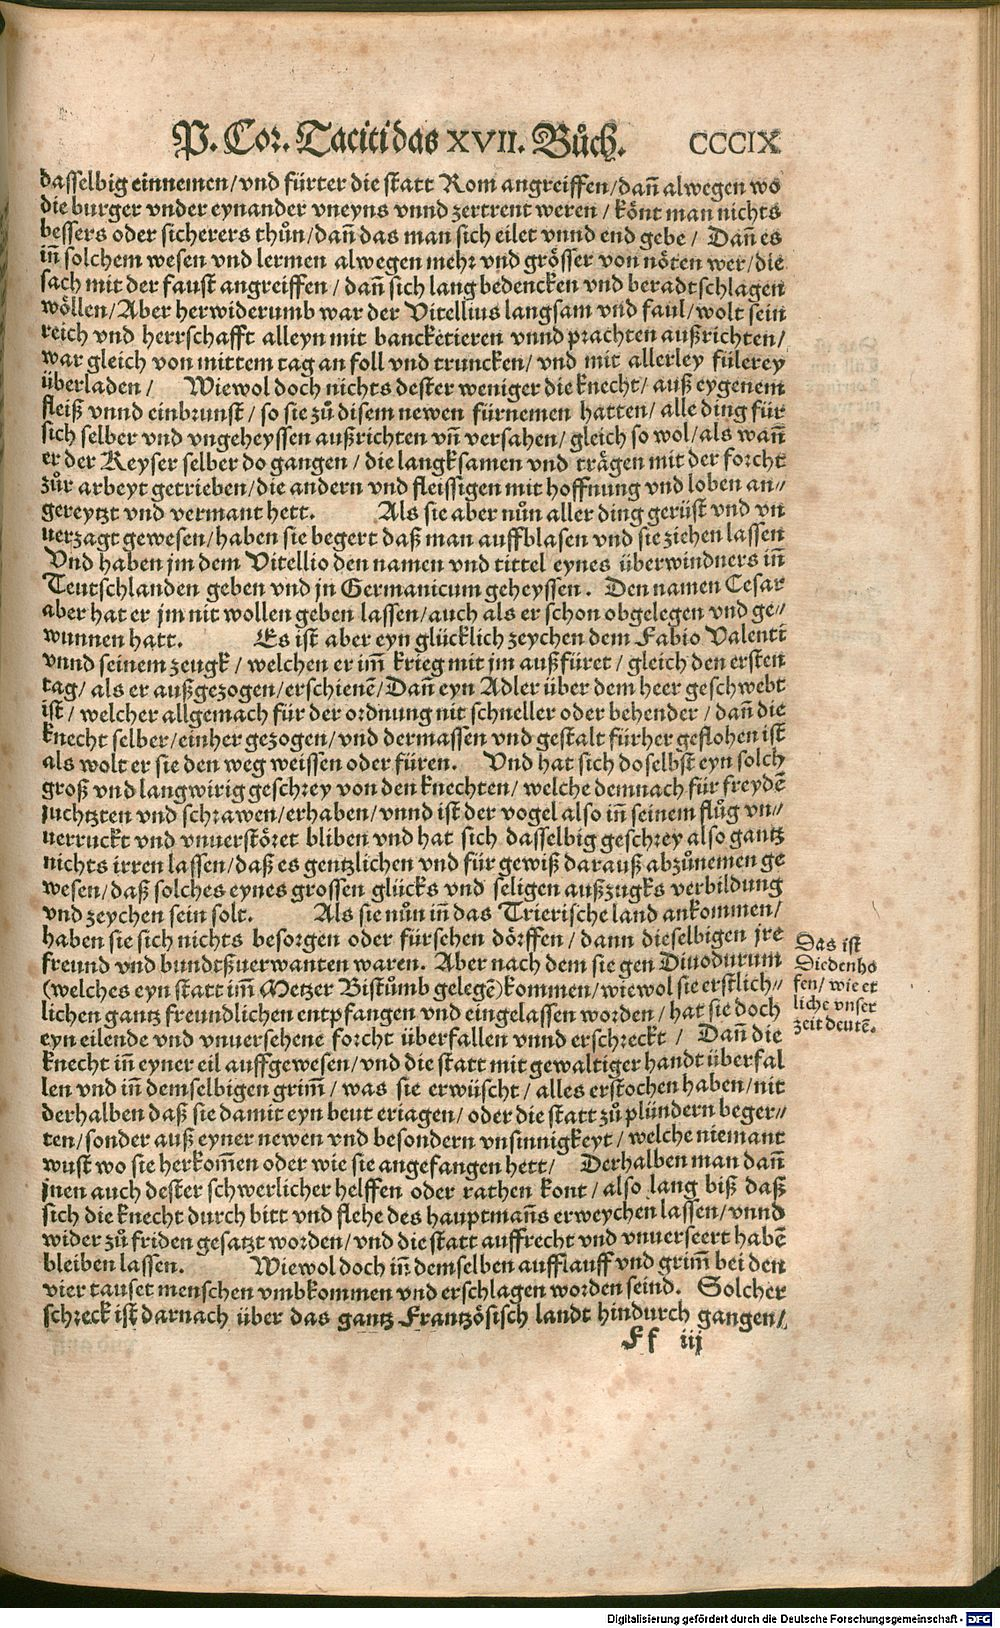 P. Cor. Taciti das XVII. Bůch. CCCIX
dasselbig einnemen/vnd fürter die statt Rom angreiffen/dañ alwegen wo
die burger vnder eynander vneyns vnnd zertrent weren/könt man nichts
bessers oder sicherers thůn/dañ das man sich eilet vnnd end gebe/ Dañ es
iñ solchem wesen vnd lermen alwegen mehr vnd grösser von nöten wer/die
sach mit der faust angreiffen/dañ sich lang bedencken vnd beradtschlagen
wöllen/Aber herwiderumb war der Vitellius langsam vnd faul/wolt sein
reich vnd herrschafft alleyn mit banckětieren vnnd prachten außrichten/
war gleich von mittem tag an foll vnd truncken/vnd mit allerley fülerey
überladen/ Wiewol doch nichts dester weniger die knecht/auß eygenem
fleiß vnnd einbrunst/so sie zů disem newen fürnemen hatten/alle ding für
sich selber vnd vngeheyssen außrichten vñ versahen/gleich so wol/als wañ
er der Keyser selber do gangen/die langksamen vnd trägen mit der forcht
zůr arbeyt getrieben/die andern vnd fleissigen mit hoffnung vnd loben an⸗
gereytzt vnd vermant hett. Als sie aber nůn aller ding gerüst vnd vn
uerzagt gewesen/haben sie begert daß man auffblasen vnd sie ziehen lassen
Vnd haben jm dem Vitellio den namen vnd tittel eynes überwindners iñ
Teutschlanden geben vnd jn Germanicum geheyssen. Den namen Cesar
aber hat er jm nit wollen geben lassen/auch als er schon obgelegen vnd ge⸗
wunnen hatt. Es ist aber eyn glücklich zeychen dem Fabio Valenti
vnnd seinem zeugk/welchen er im̃ krieg mit jm außfüret/gleich den ersten
tag/als er außgezogen/erschienẽ/Dañ eyn Adler über dem heer geschwebt
ist/welcher allgemach für der ordnung nit schneller oder behender/dañ die
knecht selber/einher gezogen/vnd dermassen vnd gestalt fürher geflohen ist
als wolt er sie den weg weissen oder füren. Vnd hat sich doselbst eyn solch
groß vnd langwirig geschrey von den knechten/welche demnach für freydẽ
juchtzten vnd schrawen/erhaben/vnnd ist der vogel also iñ seinem flůg vn⸗
uerruckt vnd vnuerstöret bliben vnd hat sich dasselbig geschrey also gantz
nichts irren lassen/daß es gentzlichen vnd für gewiß darauß abzůnemen ge
wesen/daß solches eynes grossen glücks vnd seligen außzugks verbildung
vnd zeychen sein solt. Als sie nůn iñ das Trierische land ankommen/
haben sie sich nichts besorgen oder fürsehen dörffen/dann dieselbigen jre
freund vnd bundtßuerwanten waren. Aber nach dem sie gen Diuodurum
(welches eyn statt im̃ Metzer Bistůmb gelegẽ)kommen/wiewol sie erstlich⸗
lichen gantz freundlichen entpfangen vnd eingelassen worden/hat sie doch
eyn eilende vnd vnuersehene forcht überfallen vnnd erschreckt/ Dañ die
knecht iñ eyner eil auffgewesen/vnd die statt mit gewaltiger handt überfal
len vnd iñ demselbigen grim̃/was sie erwüscht/alles erstochen haben/nit
derhalben daß sie damit eyn beut eriagen/oder die statt zů plündern beger⸗
ten/sonder auß eyner newen vnd besondern vnsinnigkeyt/welche niemant
wust wo sie herkom̃en oder wie sie angefangen hett/ Derhalben man dañ
jnen auch dester schwerlicher helffen oder rathen kont/also lang biß daß
sich die knecht durch bitt vnd flehe des hauptmañs erweychen lassen/vnnd
wider zů friden gesatzt worden/vnd die statt auffrecht vnd vnuerseert habẽ
bleiben lassen. Wiewol doch iñ demselben aufflauff vnd grim̃ bei den
vier tauset menschen vmbkommen vnd erschlagen worden seind. Solcher
schreck ist darnach über das gantz Frantzösisch landt hindurch gangen/
Ff iij
Das ist
Diedenho
fen/wie et
liche vnser
zeit deutẽ.
Digitalisierung gefördert durch die Deutsche Forschungsgemeinschaft - DFG